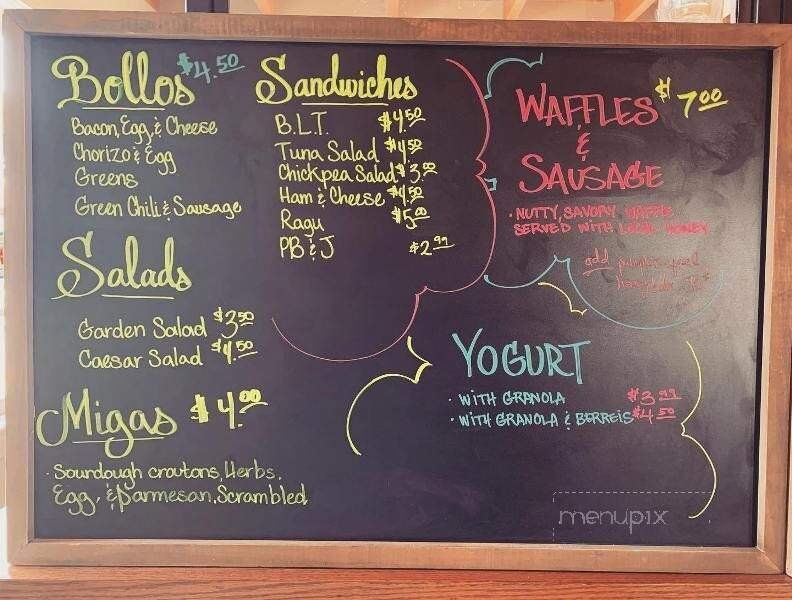 Bollos $4.50
Bacon, Egg, & Cheese
Chorizo & Egg
Greens
Green Chili & Sausage
Salads
Garden Salad $3.50
Caesar Salad $4.50
Migas $4.00
· Sourdough croutons, Herbs,
Egg, & Parmesan, Scrambled
Sandwiches
B.L.T. $4.50
Tuna Salad $4.50
Chickpea Salad $3.00
Ham & Cheese $4.50
Ragu $5.00
PB & J $2.99
WAFFLES $7.00
&
SAUSAGE
· NUTTY, SAVORY WAFFLE
SERVED WITH LOCAL HONEY
add
YOGURT
· WITH GRANOLA $3.99
· WITH GRANOLA & BERREIS $4.50
menupix